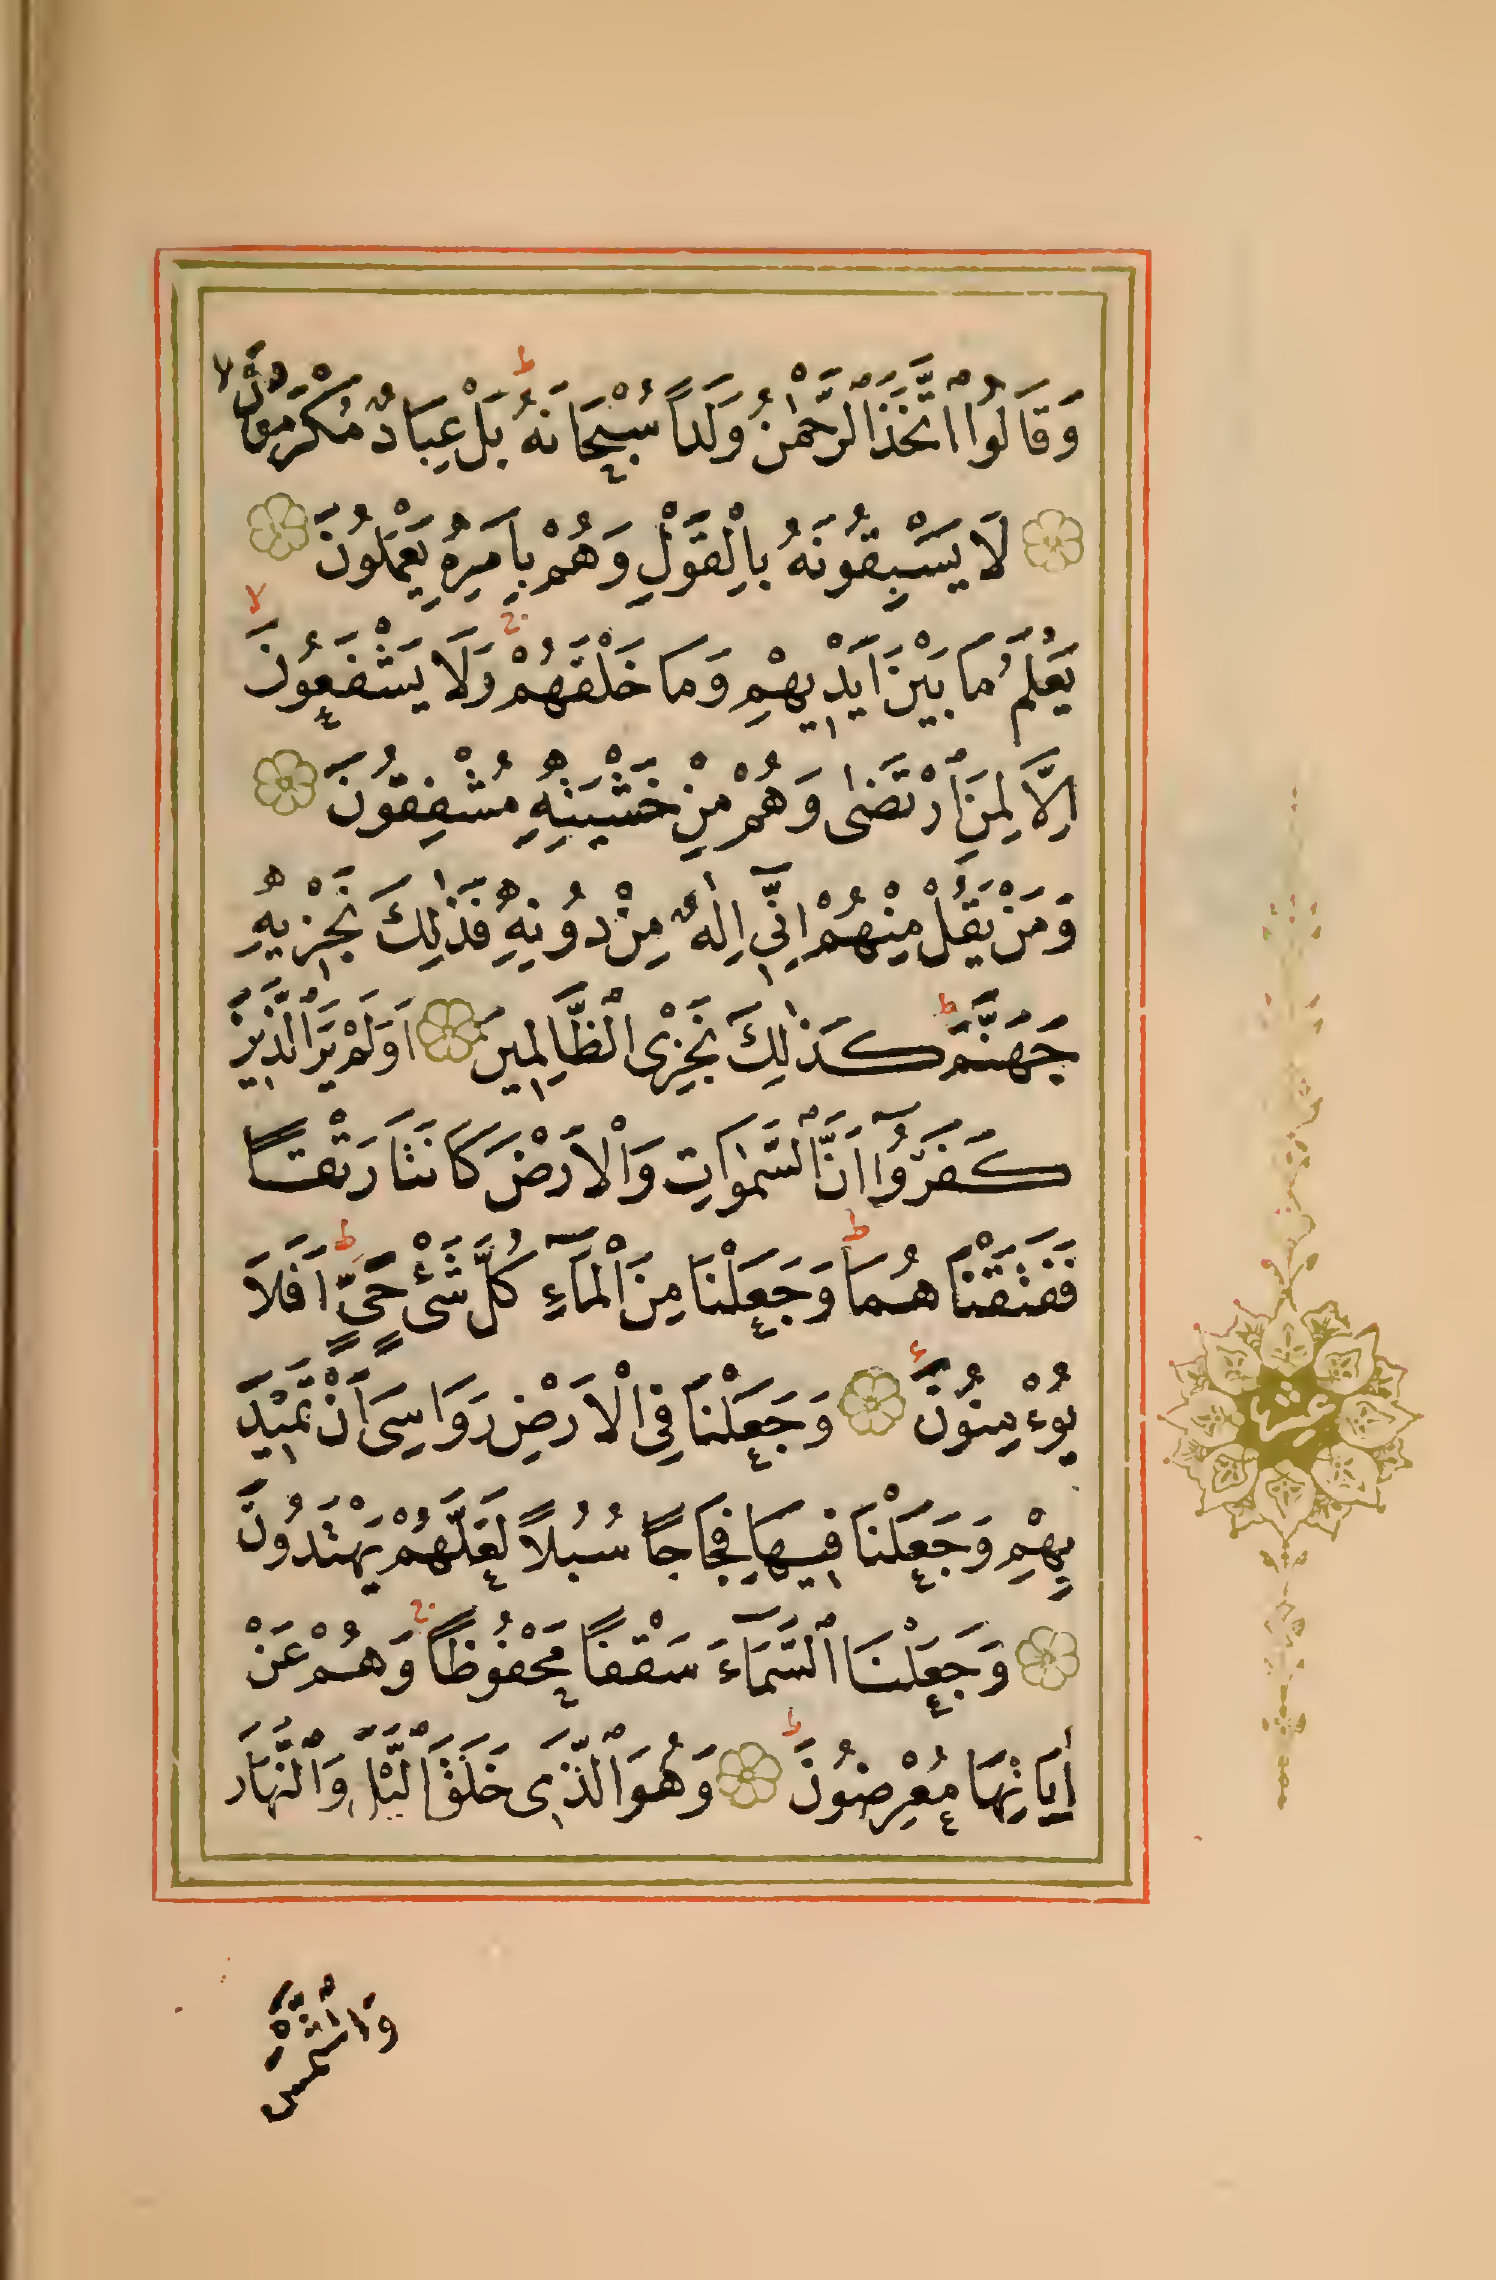 وَقَالُوا اتَّخَذَ الرَّحْمٰنُ وَلَدًا سُبْحَانَهُ ط بَلْ عِبَادٌ مُكْرَمُونَ لا
لَا يَسْبِقُونَهُ بِالْقَوْلِ وَهُمْ بِاَمْرِهِ يَعْمَلُونَ
يَعْلَمُ مَا بَيْنَ اَيْدِيهِمْ وَمَا خَلْفَهُمْ وَلَا يَشْفَعُونَ لا
اِلَّا لِمَنِ ارْتَضٰى وَهُمْ مِنْ خَشْيَتِهِ مُشْفِقُونَ
وَمَنْ يَقُلْ مِنْهُمْ اِنِّٓي اِلٰهٌ مِنْ دُونِهِ فَذٰلِكَ نَجْزِيهِ
جَهَنَّمَ ط كَذٰلِكَ نَجْزِى الظَّالِمِينَ اَوَلَمْ يَرَ الَّذِينَ
كَفَرُٓوا اَنَّ السَّمٰوَاتِ وَالْاَرْضَ كَانَتَا رَتْقًا
فَفَتَقْنَاهُمَا ط وَجَعَلْنَا مِنَ الْمَٓاءِ كُلَّ شَيْءٍ حَيٍّ ط اَفَلَا
يُؤْمِنُونَ وَجَعَلْنَا فِي الْاَرْضِ رَوَاسِيَ اَنْ تَمِيدَ
بِهِمْ وَجَعَلْنَا فِيهَا فِجَاجًا سُبُلًا لَعَلَّهُمْ يَهْتَدُونَ
وَجَعَلْنَا السَّمَٓاءَ سَقْفًا مَحْفُوظًا وَهُمْ عَنْ
اٰيَاتِهَا مُعْرِضُونَ ط وَهُوَ الَّذِى خَلَقَ الَّيْلَ وَالنَّهَارَ
وَالشَّمْسَ